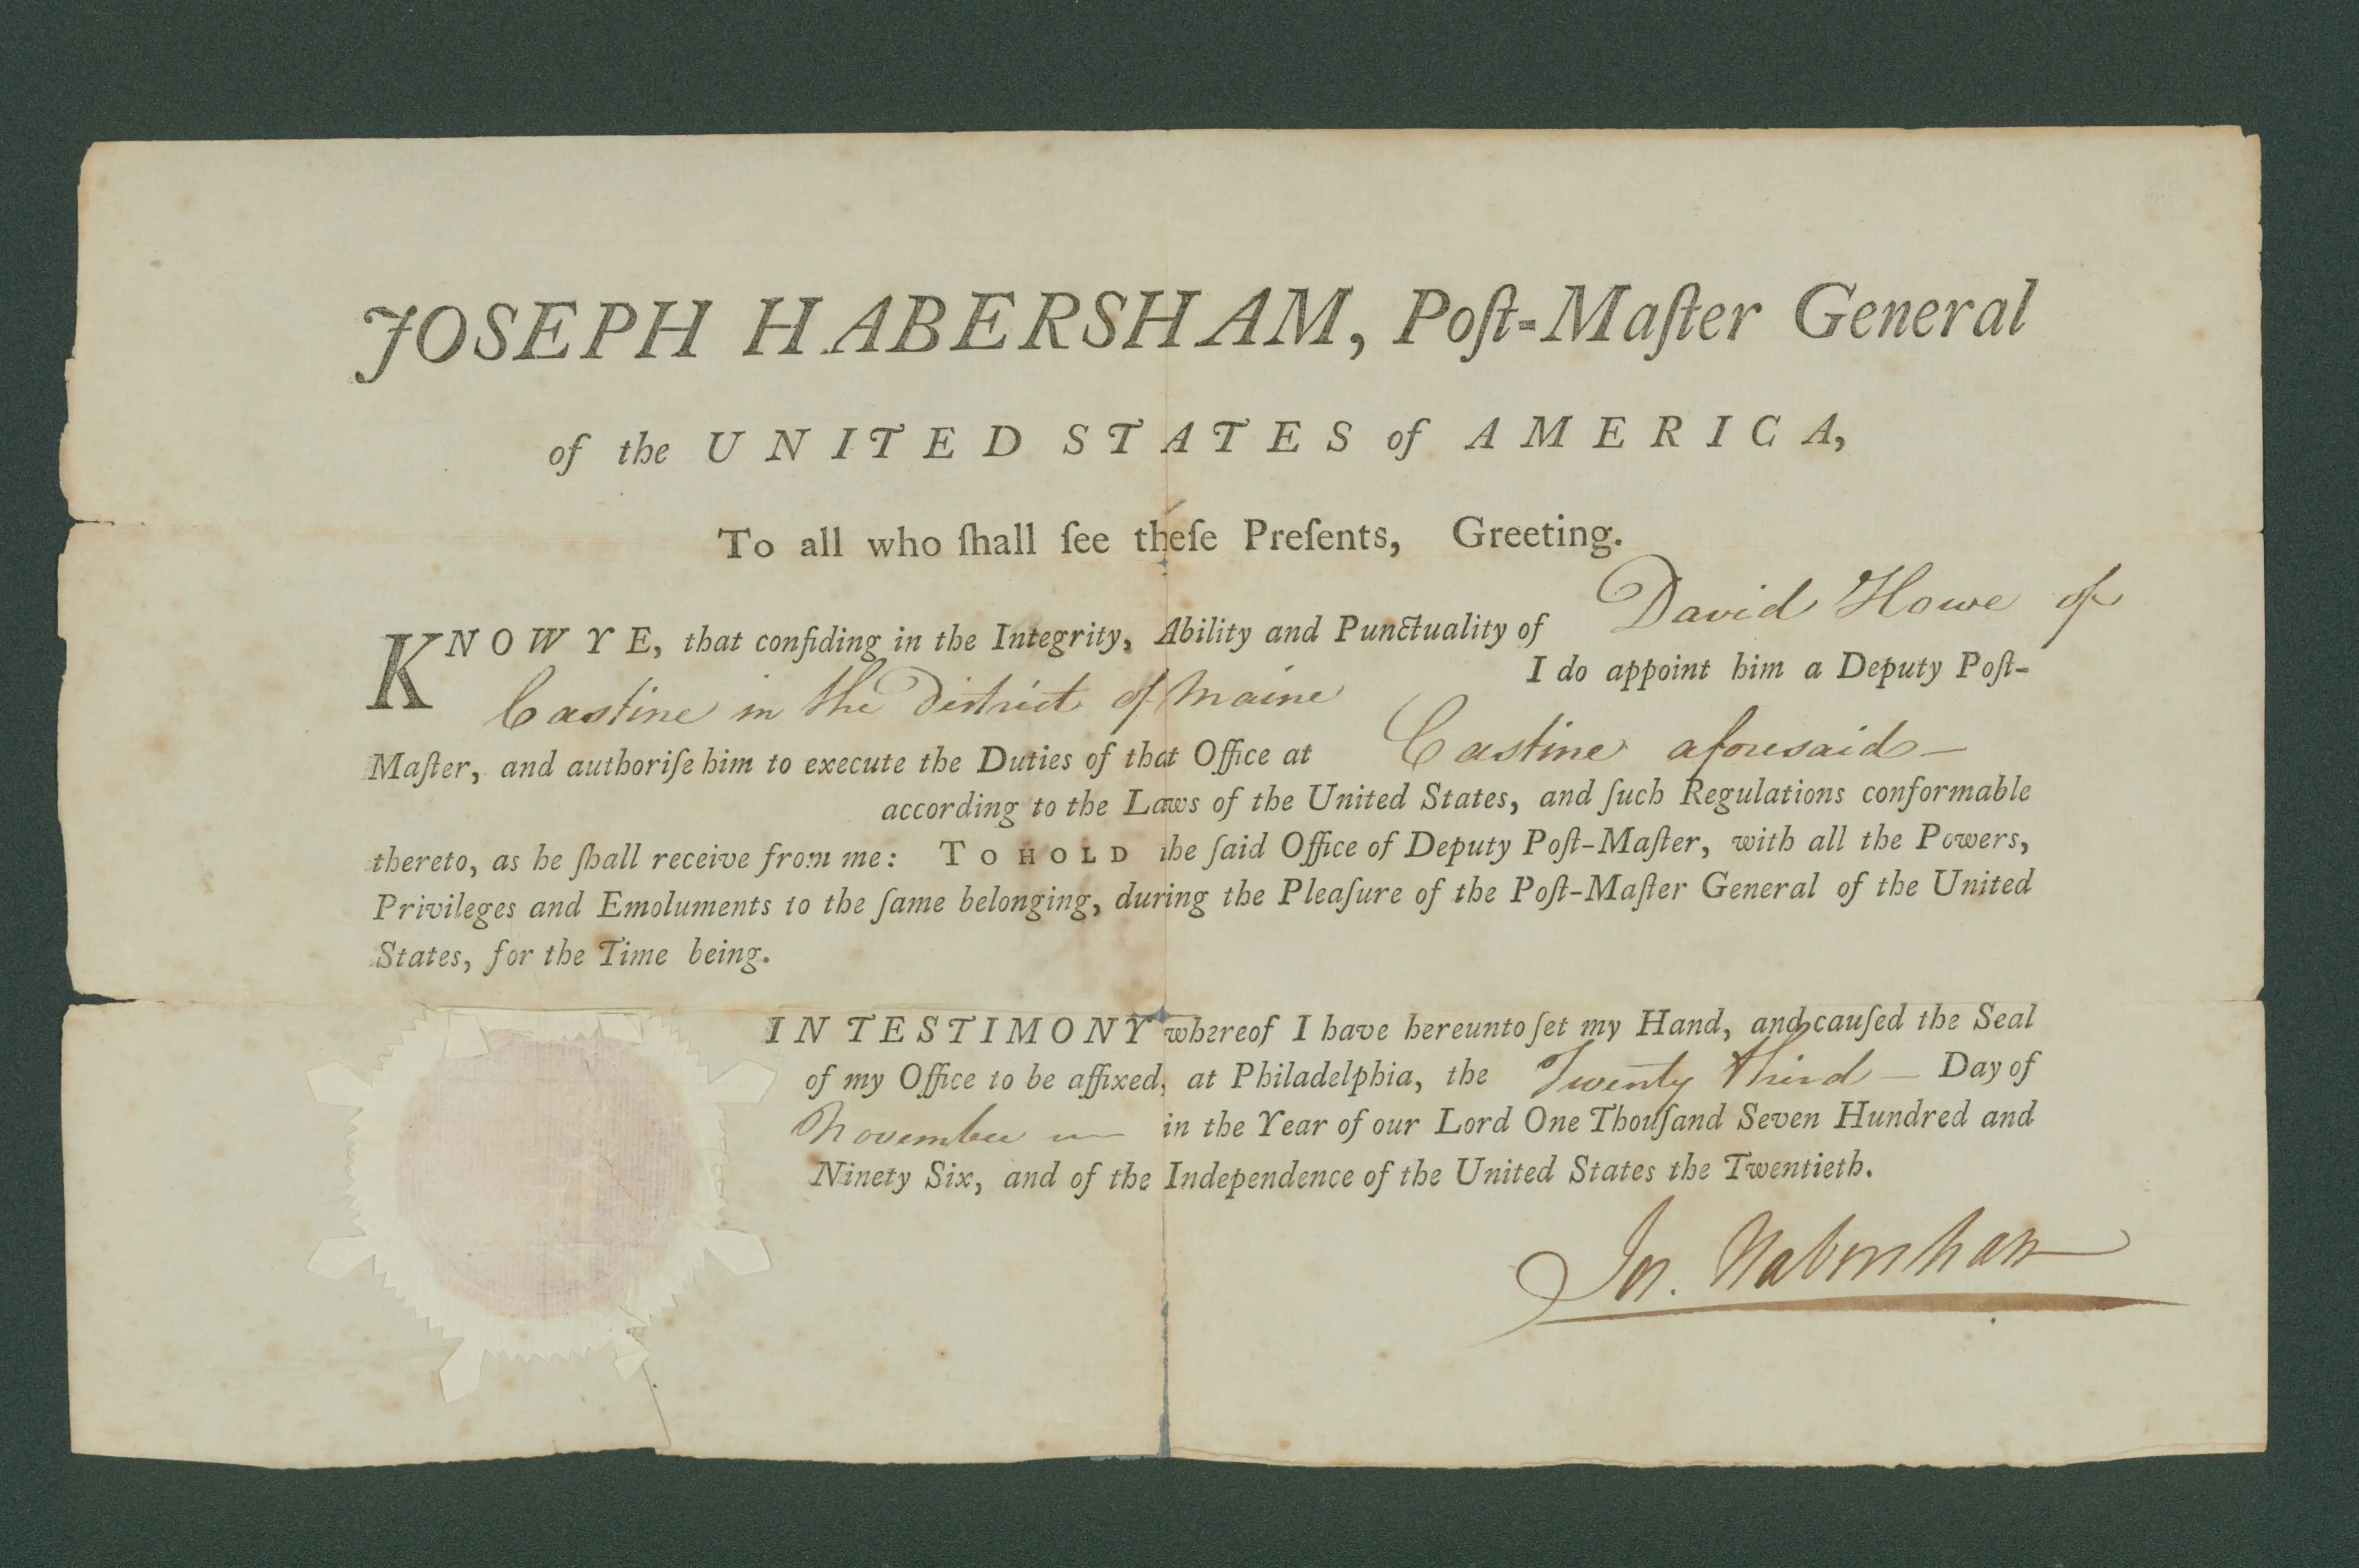 JOSEPH HABERSHAM, Poſt-Maſter General
of the UNITED STATES of AMERICA,
To all who ſhall ſee theſe Preſents, Greeting.
KNOW YE, that confiding in the Integrity, Ability and Punctuality of David Howe of
Castine in the District of Maine I do appoint him a Deputy Poſt-
Maſter, and authoriſe him to execute the Duties of that Office at Castine aforesaid —
according to the Laws of the United States, and ſuch Regulations conformable
thereto, as he ſhall receive from me: TO HOLD the ſaid Office of Deputy Poſt-Maſter, with all the Powers,
Privileges and Emoluments to the ſame belonging, during the Pleaſure of the Poſt-Maſter General of the United
States, for the Time being.
IN TESTIMONY whereof I have hereunto ſet my Hand, and cauſed the Seal
of my Office to be affixed, at Philadelphia, the Twenty third — Day of
November in the Year of our Lord One Thouſand Seven Hundred and
Ninety Six, and of the Independence of the United States the Twentieth.
Jos. Habersham